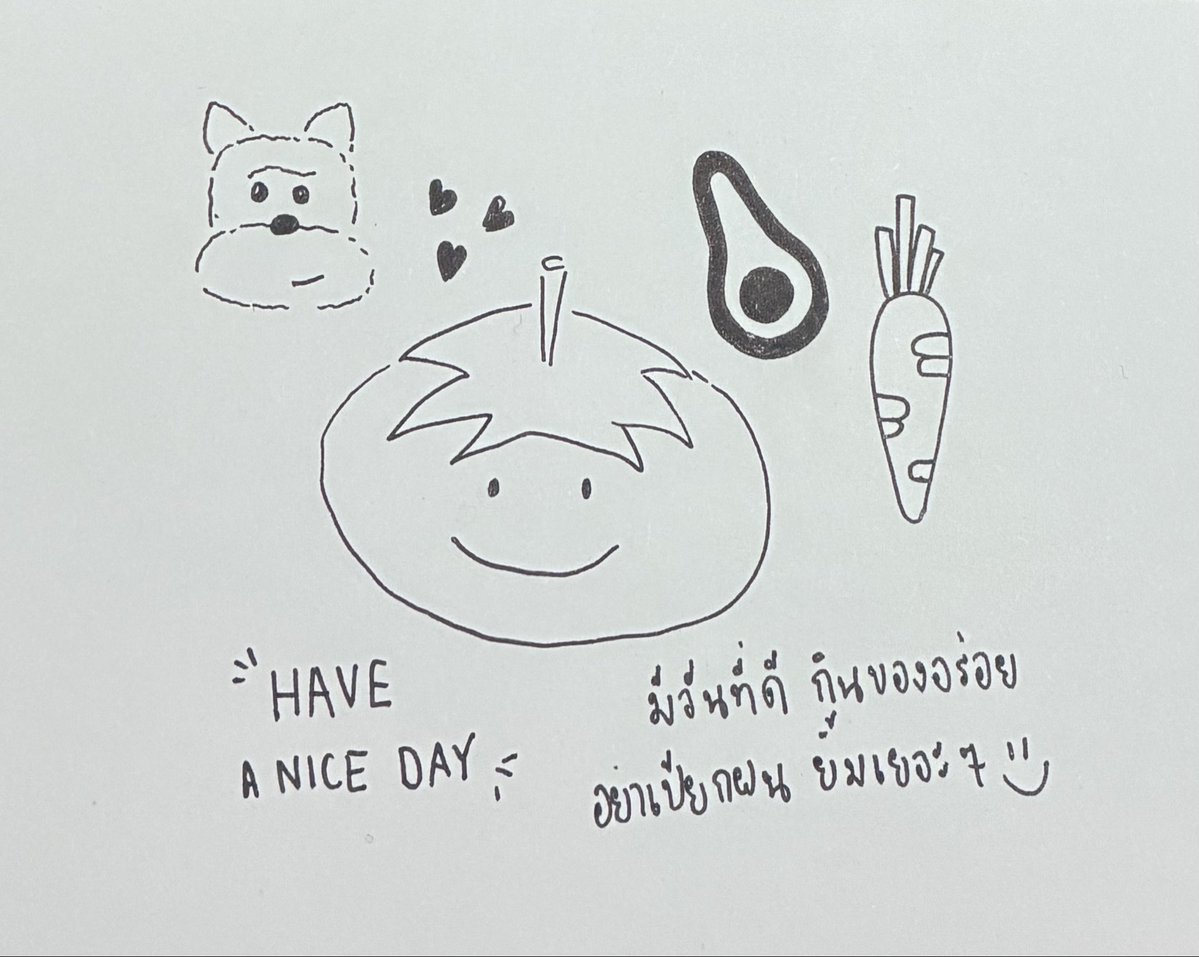 HAVE
A NICE DAY
มีวันที่ดี กินของอร่อย
อย่าเปียกฝน ยิ้มเยอะๆ